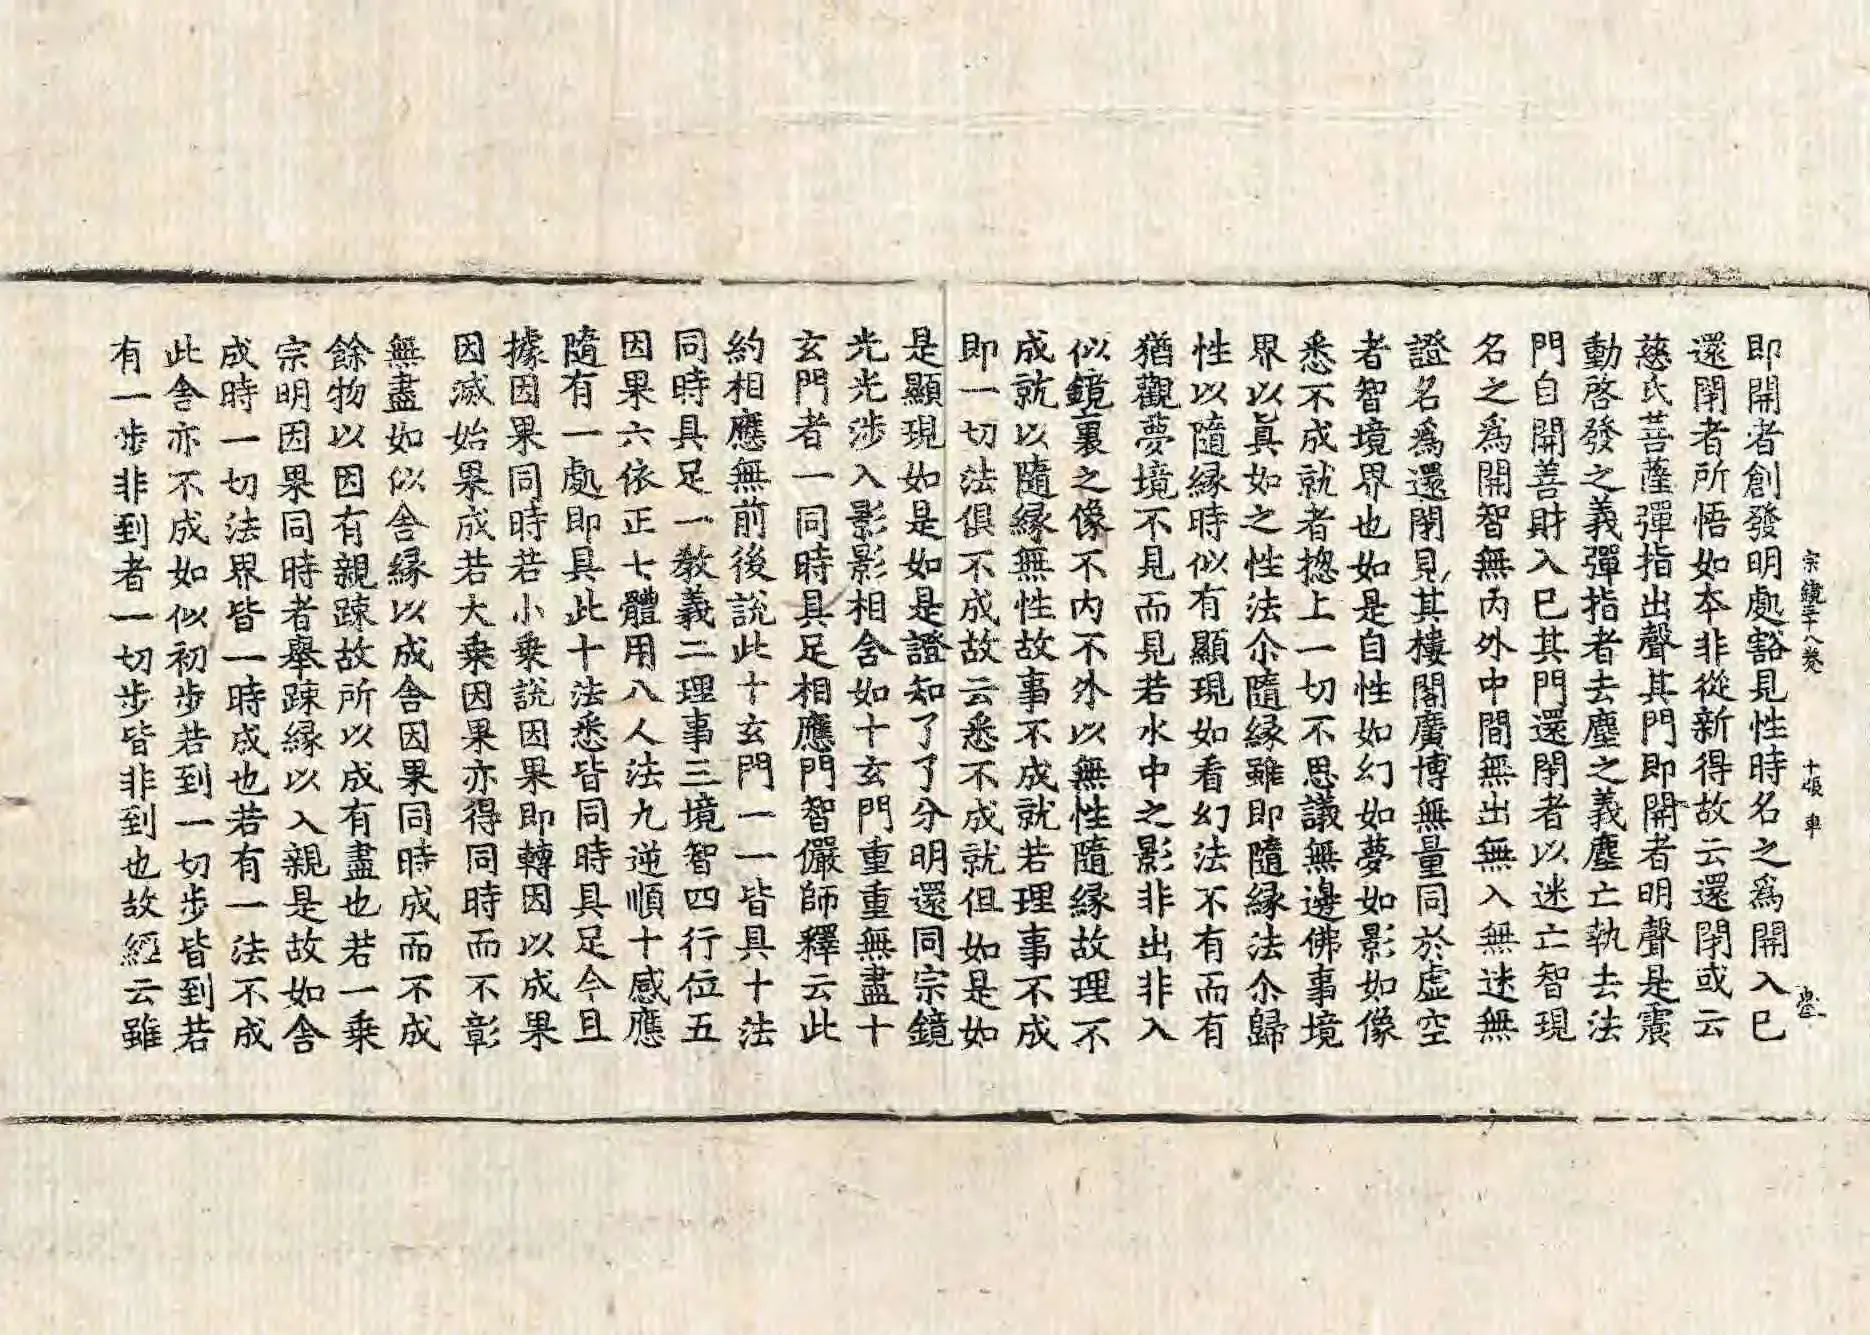 宗鏡三十八卷　十張　車
即開者創發明處豁見性時名之爲開入已
還閉者所悟如夲非從新得故云還閉或云
慈氏菩薩彈指出聲其門即開者明聲是震
動啓發之義彈指者去塵之義塵亡執去法
門自開善財入已其門還閉者以迷亡智現
名之爲開智無内外中間無出無入無迷無
證名爲還閉見其樓閣廣博無量同於虛空
者智境界也如是自性如幻如夢如影如像
悉不成就者揔上一切不思議無邊佛事境
界以眞如之性法尒隨緣雖即隨緣法尒歸
性以隨緣時似有顯現如看幻法不有而有
猶觀夢境不見而見若水中之影非出非入
似鏡裏之像不内不外以無性隨緣故理不
成就以隨緣無性故事不成就若理事不成
即一切法俱不成故云悉不成就但如是如
是顯現如是如是證知了了分明還同宗鏡
光光涉入影影相含如十玄門重重無盡十
玄門者一同時具足相應門智儼師釋云此
約相應無前後說此十玄門一一皆具十法
同時具足一教義二理事三境智四行位五
因果六依正七體用八人法九逆順十感應
隨有一處即具此十法悉皆同時具足今且
據因果同時若小乗說因果即轉因以成果
因滅始果成若大乗因果亦得同時而不彰
無盡如似舍緣以成舍因果同時成而不成
餘物以因有親踈故所以成有盡也若一乗
宗明因果同時者舉踈緣以入親是故如舍
成時一切法界皆一時成也若有一法不成
此舍亦不成如似初步若到一切步皆到若
有一步非到者一切步皆非到也故經云雖